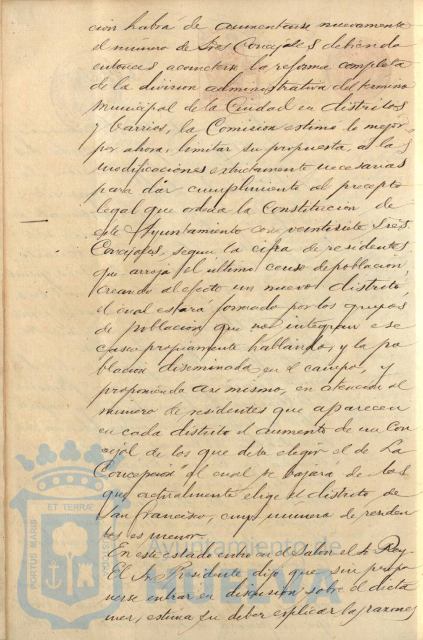 cion habrá de aumentarse nuevamente
el número de Sres Concejales debiendo
entonces acometerse la reforma completa
de la division administrativa del termino
Municipal de la Ciudad en distritos
y barrios, la Comision estima lo mejor,
por ahora, limitar su propuesta a las
modificaciones estrictamente necesarias
para dar cumplimiento al precepto
legal que ordena la Constitucion de
este Ayuntamiento con veintisiete Sres.
Concejales, segun la cifra de residentes
que arroja el ultimo censo de poblacion,
creando al efecto un nuevo distrito
el cual estará formado por los grupos
de poblacion que no integran ese
casco propiamente hablando, y la po
blacion diseminada en el campo, y
proponiendo asi mismo, en atencion al
número de residentes que aparecen
en cada distrito el aumento de un Con
cejal de los que debe elegir el de La
Concepcion el cual se bajará de los
que actualmente elige el distrito de
San Francisco, cuyo número de residen
tes es menor.
En este estado entró en el Salon el Sr Rey
El Sr. Presidente dijo que sin propo
nerse entrar en discusion sobre el dicta
men, estima su deber explicar las razones
PORTUS MARIS ET TERRAE
Ayuntamiento de
HUELVA